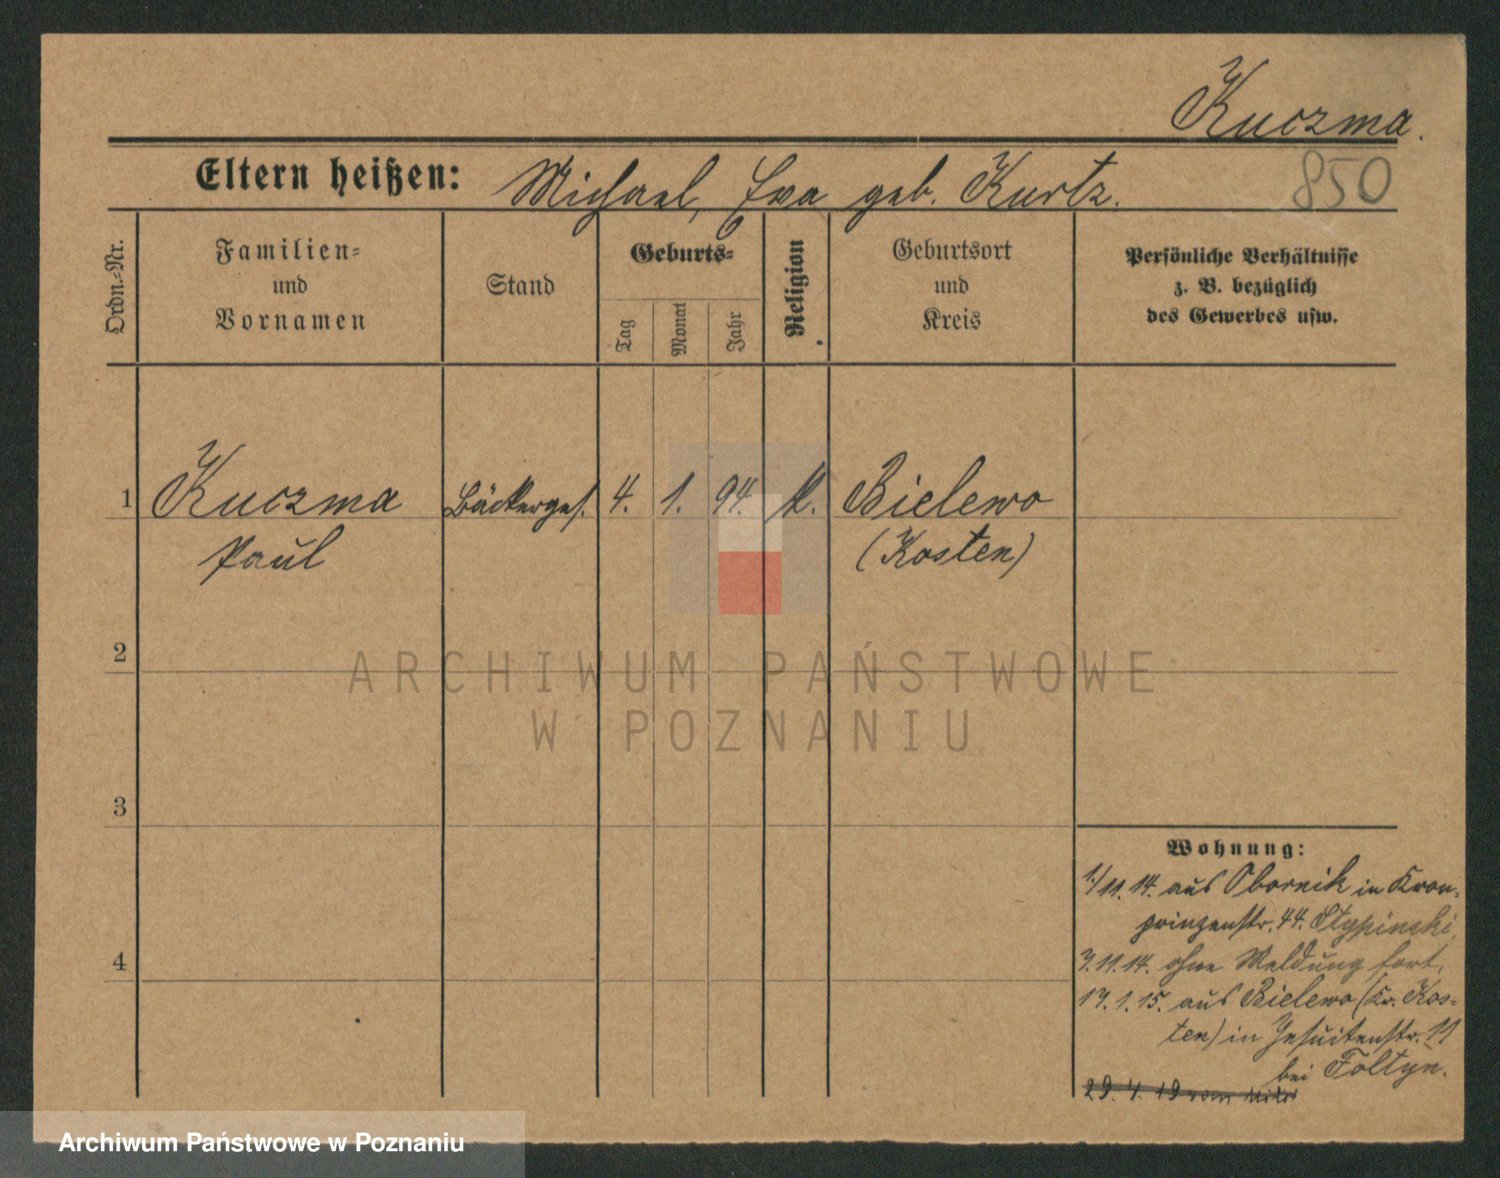 Kuczma.
Eltern heißen: Michael, Eva geb. Kurtz.
850
Ordn.-Nr.
Familien-
und
Vornamen
Stand
Geburts-
Tag
Monat
Jahr
Religion
Geburtsort
und
Kreis
Persönliche Verhältnisse
z. B. bezüglich
des Gewerbes usw.
1 Kuczma Bäckerges. 4. 1. 94. k. Bielewo
Paul (Kosten)
2
3
4
ARCHIWUM PAŃSTWOWE
W POZNANIU
Wohnung:
1./11.14. aus Obornik in Kron-
prinzenstr. 44. Stypinski,
3.11.14. ohne Meldung fort,
17.1.15. aus Bielewo (Kr. Kos-
ten) in Jesuitenstr. 11
bei Foltyn.
29.4.19 vom
Archiwum Państwowe w Poznaniu